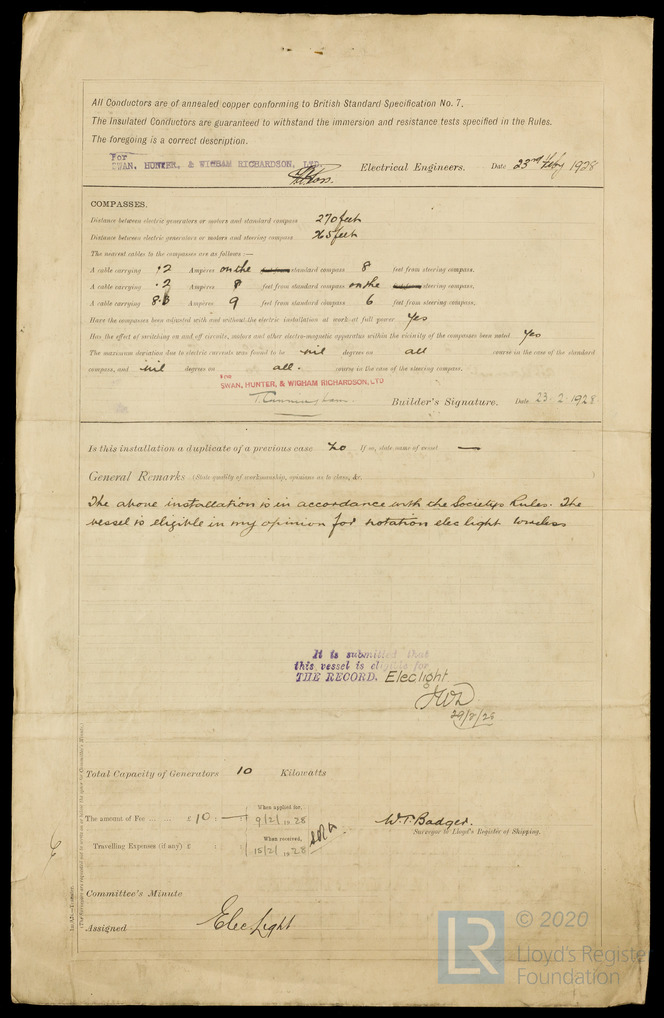 All Conductors are of annealed copper conforming to British Standard Specification No. 7.
The Insulated Conductors are guaranteed to withstand the immersion and resistance tests specified in the Rules.
The foregoing is a correct description.
For
SWAN, HUNTER, & WIGHAM RICHARDSON, LTD. Electrical Engineers. Date 23rd Feby 1928
COMPASSES.
Distance between electric generators or motors and standard compass 270 feet
Distance between electric generators or motors and steering compass 265 feet
The nearest cables to the compasses are as follows:—
A cable carrying .2 Ampères on the standard compass 8 feet from steering compass.
A cable carrying .2 Ampères 8 feet from standard compass on the steering compass.
A cable carrying Ampères 9 feet from standard compass 6 feet from steering compass.
Have the compasses been adjusted with and without the electric installation at work at full power Yes
Has the effect of switching on and off circuits, motors and other electro-magnetic apparatus within the vicinity of the compasses been noted Yes
The maximum deviation due to electric currents was found to be nil degrees on all course in the case of the standard
compass, and nil degrees on all. course in the case of the steering compass.
FOR
SWAN, HUNTER, & WIGHAM RICHARDSON, LTD
T. Cunningham Builder's Signature. Date 23.2.1928
Is this installation a duplicate of a previous case No If so, state name of vessel —
General Remarks (State quality of workmanship, opinions as to class, &c.)
The above installation is in accordance with the Societys Rules. The
vessel is eligible in my opinion for notation elec light wireless
It is submitted that
this vessel is eligible for
THE RECORD. Elec light
Total Capacity of Generators 10 Kilowatts
When applied for,
The amount of Fee ... ... £ 10 : — : 9/2/1928
W.T. Badger.
Surveyor to Lloyd's Register of Shipping.
When received,
Travelling Expenses (if any) £ : : 15/2/1928
Committee's Minute
Assigned Elec Light
LR © 2020
Lloyd's Register
Foundation